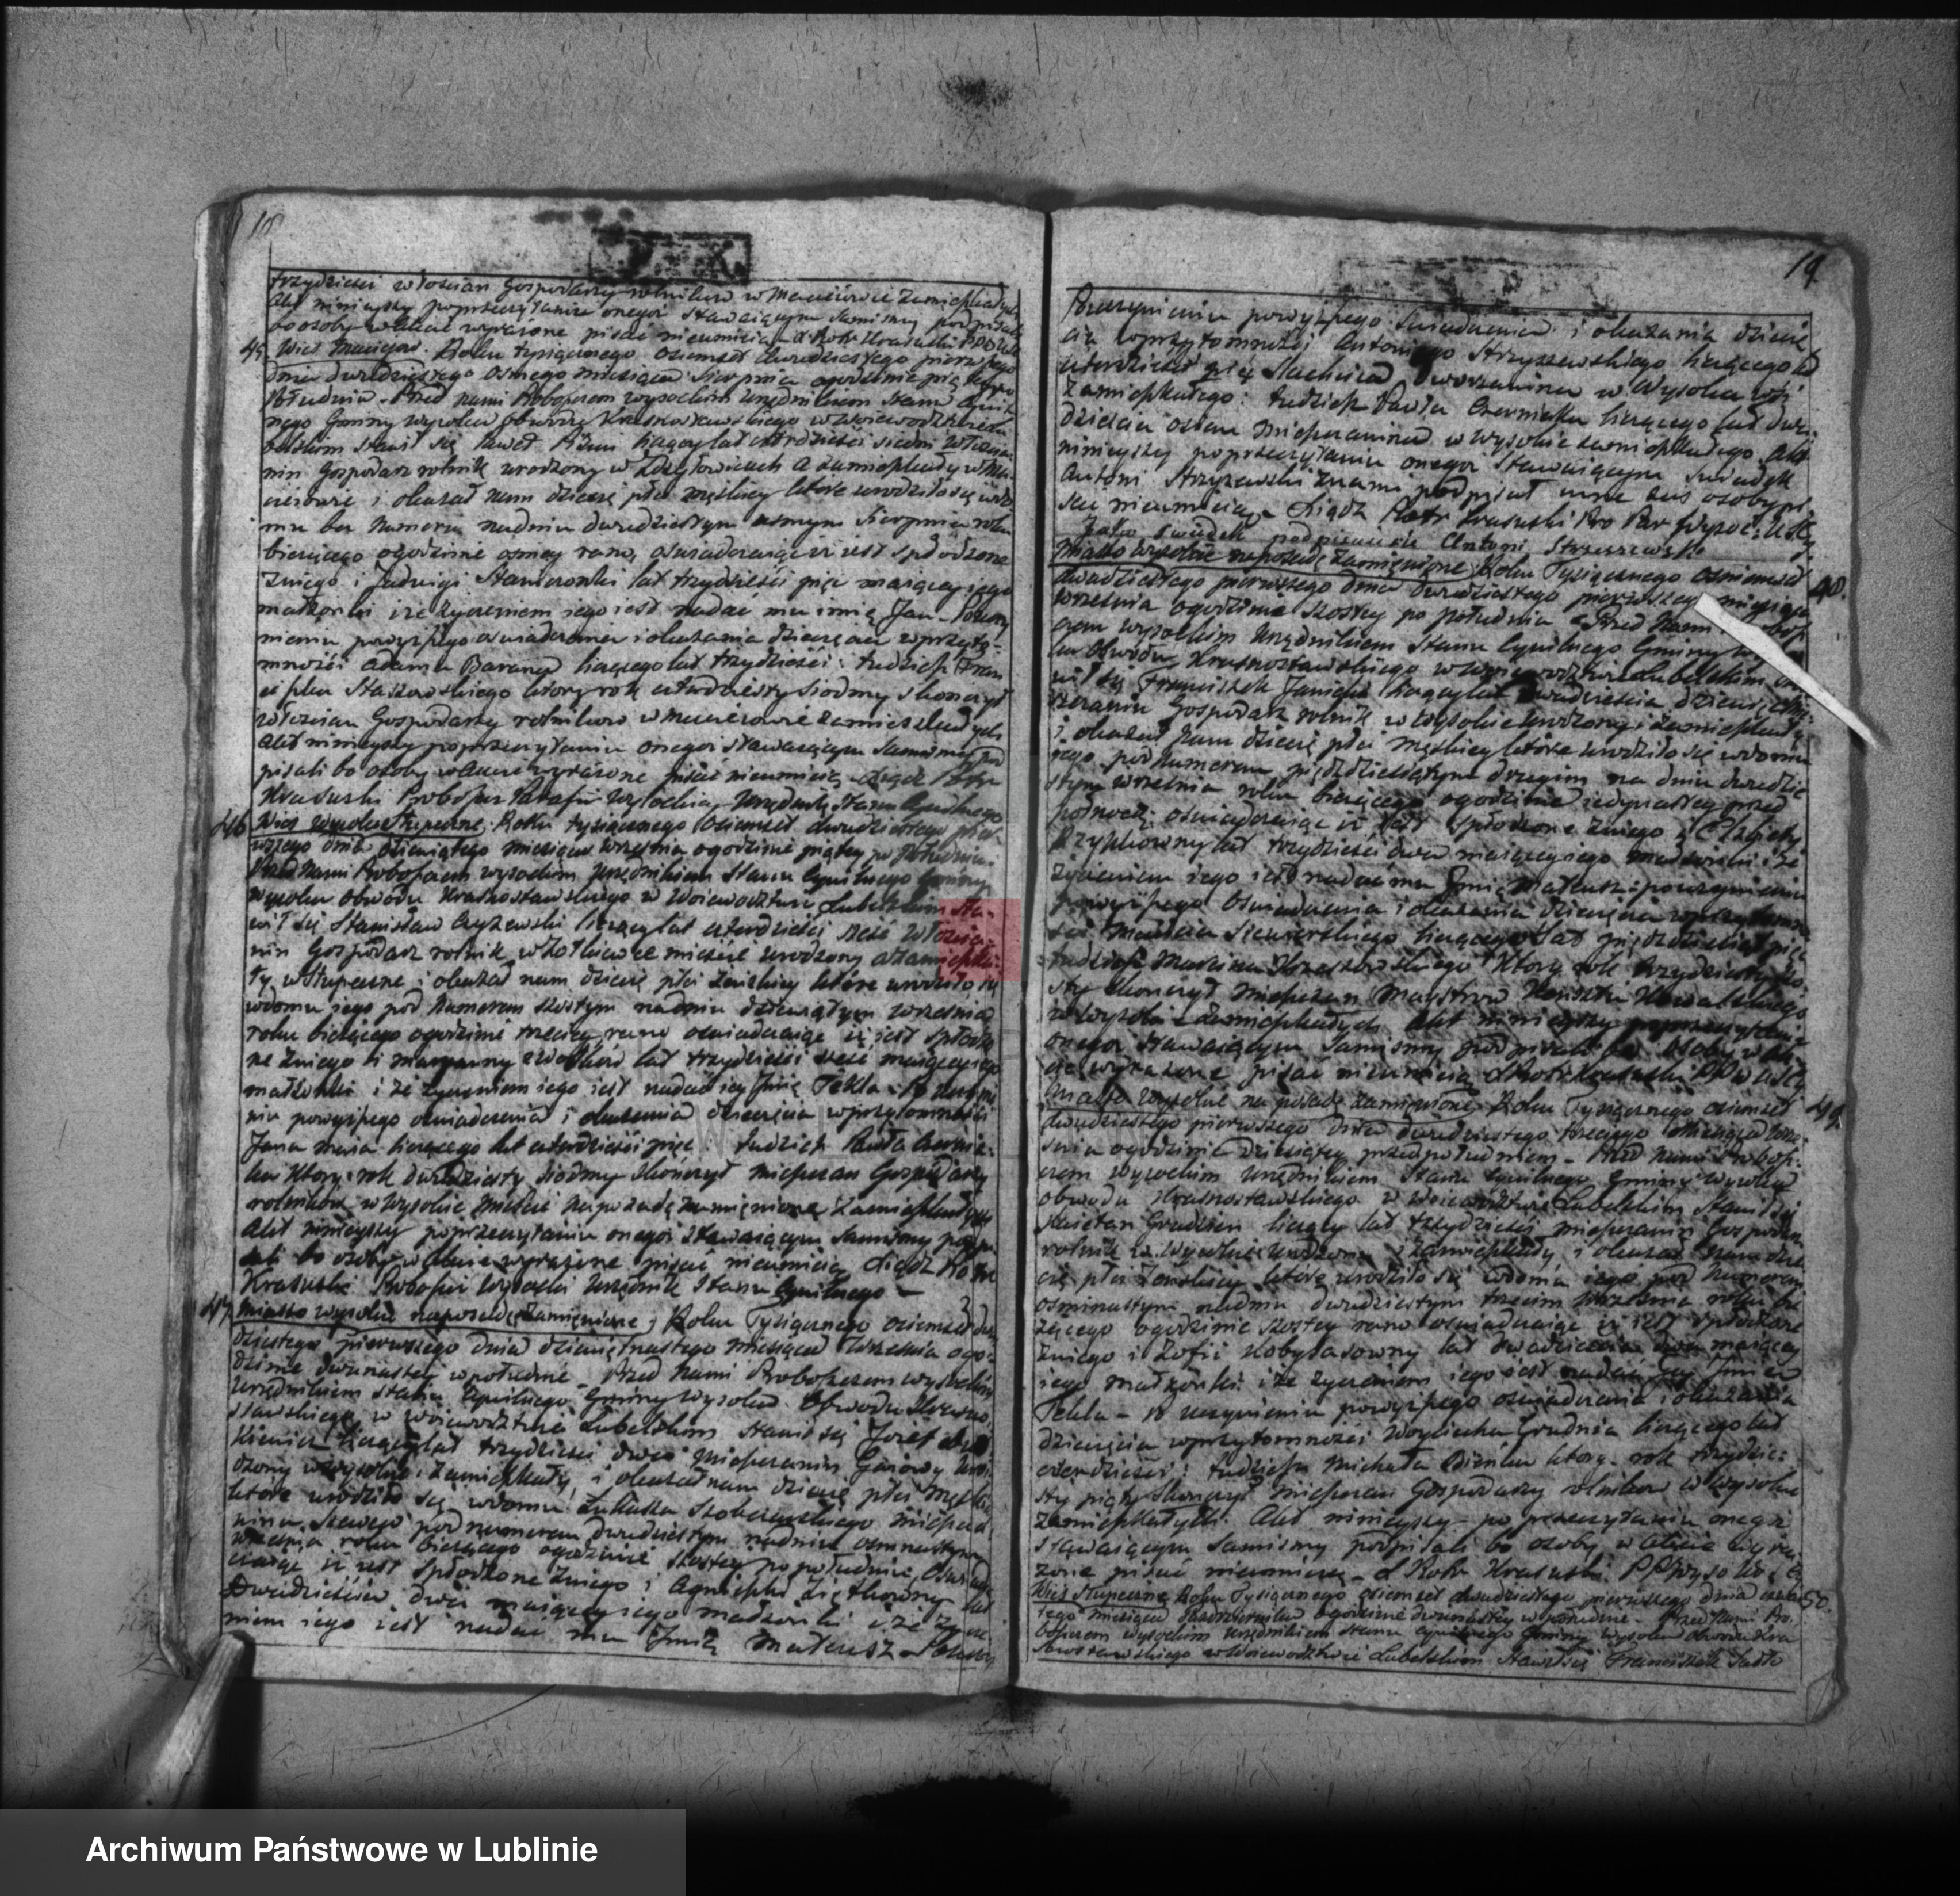 18
trzydzieści włościan Gospodarzy rolników w Maciejowie Zamieszkałych
Akt niniejszy po przeczytaniu onegoż Stawającym Samiśmy podpisali
bo osoby w akcie wyrażone pisać nieumieią
45 Wieś Maciejow. Roku tysiącznego osiemset dwudziestego pierwszego
dnia dwudziestego osmego miesiąca Sierpnia ogodzinie piątey po
Południu. Przed nami Proboszczem wysockim urzędnikiem Stanu Cywil
nego Gminy wysokie Obwodu Krasnostawskiego w Woiewodztwie Lu
belskim stawił się Paweł liczący lat czterdzieści siedm włościa
nin Gospodarz rolnik urodzony w a zamieszkały w Ma
ciejowie i okazał nam dziecię płci męskiey które urodziło się w do
mu bez Numeru na dniu dwudziestym osmym Sierpnia roku
bieżącego ogodzinie osmey rano, oswiadczaiąc iż iest spłodzone
zniego i Jadwigi lat trzydzieści pięć maiącey iego
małżonki i że życzeniem iego iest nadać mu imię Jan - Po uczy
nieniu powyższego oswiadczenia i okazania dziecięcia w przyto
mności Adama Barana liczącego lat trzydzieści: tudzież Fran
ciszka Staszewskiego ktory rok czterdziesty siodmy skonczył
włościan Gospodarzy rolników w Maciejowie Zamieszkałych
Akt niniejszy po przeczytaniu onegoż stawaiącym Samiśmy pod
pisali bo osoby w Akcie wyrażone pisać nieumieią - Xiądz Piotr
Krasuski Proboszcz Parafii Wysockiey Urzędnik Stanu Cywilnego
46 Wieś wysokie Słupeczne. Roku tysiącznego Osiemset dwudziestego pier
wszego dnia dziewiątego miesiąca września ogodzinie piątey po Południu.
Przed Nami Proboszczem wysockim Urzędnikiem Stanu Cywilnego Gminy
Wysokie obwodu Krasnostawskiego w Woiewodztwie Lubelskim Sta-
wił się Stanisław Czyżewski liczący lat czterdzieści sześć Włościa
nin Gospodarz rolnik w mieście urodzony a zamieszka
ły w Słupeczne i okazał nam dziecię płci żeńskiey które urodziło się
w domu jego pod Numerem szóstym na dniu dziewiątym września
roku bieżącego ogodzinie trzeciey rano oswiadczaiąc iż iest spłodzo
ne zniego i Maryanny lat trzydzieści sześć maiącey iego
małżonki i że życzeniem iego iest nadać iey Imię Tekla - Po uczynie
niu powyższego oswiadczenia i okazania dziecięcia w przytomności
Jana liczącego lat czterdzieści pięć: tudzież Pawła Czernia
ka Ktory rok dwudziesty siodmy skonczył mieszczan Gospodarzy
rolników w Wysokie Mieście na posadę zamienione Zamieszkałych
Akt niniejszy po przeczytaniu onegoż Stawaiącym Samiśmy podpi
sali bo osoby w akcie wyrażone pisać nieumieią Xiądz Piotr
Krasuski Proboszcz Wysocki Urzędnik Stanu Cywilnego -
47 Miasto wysokie na posadę Zamienione, Roku Tysiącznego osiemset dwu
dziestego pierwszego dnia dziewiętnastego miesiąca Września ogo
dzinie dwunastey w południe - Przed Nami Proboszczem wysockim
Urzędnikiem Stanu Cywilnego Gminy Wysokie Obwodu Krasno
stawskiego w woiewodztwie Lubelskim stawił się Jozef
liczący lat trzydzieści dwa Mieszczanin uro
dzony w wysokie i zamieszkały, i okazał nam dziecię płci męskiey
które urodziło się w domu Łukasza mieszcza
nina Szewca pod numerem dwudziestym na dniu osmnastym
września roku bieżącego ogodzinie szostey po południu, Oświad
czaiąc iż iest Spłodzone zniego i Agnieszki lat
Dwadzieścia dwa maiącey iego małżonki i że życze
niem iego iest nadać mu Imię Mateusz - Po uczy
19
Po uczynieniu powyższego oswiadczenia i okazania dziecię
cia w przytomności Antoniego Strzyszewskiego liczącego lat
czterdzieści pięć Szlachcica Dworzanina w Wysokie wsi
Zamieszkałego: tudzież Pawła Czerniaka liczącego lat dwa
dzieścia osiem mieszczanina w Wysokie zamieszkałego, Akt
niniejszy po przeczytaniu onegoż Stawaiącym Swiadek
Antoni Strzyszewski znami podpisał inne zaś osoby pi
sać nieumieią - Xiądz Piotr Krasuski Pro Par Wysoc: U.S.C.
Jako świadek podpisuie się Antoni Strzyszewski
48. Miasto Wysokie na posadę Zamienione Roku Tysiącznego Osiemset
dwudziestego pierwszego dnia dwudziestego pierwszego miesiąca
Września ogodzinie szostey po południu - Przed Nami Probosz
czem wysockim Urzędnikiem Stanu Cywilnego Gminy Wyso
kie Obwodu Krasnostawskiego w Woiewodztwie Lubelskim sta
wił się Franciszek Janicki liczący lat dwadzieścia dziewięć mie
szczanin Gospodarz rolnik w Wysokie urodzony i zamieszkały
i okazał nam dziecię płci męskiey które urodziło się w domu
iego pod numerem pięćdziesiątym drugim na dniu dwudzie
stym września roku bieżącego ogodzinie iedynastey przed
północą; oświadczaiąc iż iest spłodzone zniego i Elżbiety
lat trzydzieści dwa maiącey iego małżonki i że
życzeniem iego iest nadać mu Imię Mateusz: po uczynieniu
powyższego Oswiadczenia i okazania dziecięcia w przytomno
ści Macieia Siewierskiego liczącego lat pięćdziesiąt pięć
tudzież Marcina Krzeszowskiego Ktory rok trzydziesty szo
sty skonczył mieszczan Maystrow Kunsztu Kowalskiego
w Wysokie Zamieszkałych Akt niniejszy po przeczytaniu
onegoż stawaiącym Samiśmy podpisali bo osoby w ak
cie wyrażone pisać nieumieią X Piotr Krasuski PPW USC
49. Miasto wysokie na posadę zamienione, Roku Tysiącznego osiemset
dwudziestego pierwszego Dnia dwudziestego trzeciego Miesiąca Wrze
śnia ogodzinie dziesiątey przed południem - Przed Nami Probosz
czem wysockim Urzędnikiem Stanu Cywilnego Gminy Wysokie
obwodu Krasnostawskiego w Woiewodztwie Lubelskim Stawił się
Kaietan Grudzien liczący lat trzydzieści mieszczanin Gospodarz
rolnik w Wysokie urodzony i zamieszkały i okazał nam dzie
cię płci żeńskiey które urodziło się w domu iego pod Numerem
osmnastym na dniu dwudziestym trzecim Września roku bie
żącego ogodzinie szostey rano oswiadczaiąc iż iest spłodzone
zniego i Zofii Kobylasowny lat dwadzieścia dwa maiącey
iego małżonki i że życzeniem iego iest nadać iey Imię
Tekla - Po Uczynieniu powyższego oswiadczenia i okazania
dziecięcia w przytomności Woyciecha Grudnia liczącego lat
czterdzieści: tudzież Michała ktory rok trzydzie
sty piąty skonczył mieszczan Gospodarzy rolnikow w Wysokie
Zamieszkałych. Akt niniejszy po przeczytaniu onegoż
stawaiącym Samiśmy podpisali bo osoby w Akcie wyra
żone pisać nieumieią - X Piotr Krasuski PP Wysocki, C
50. Wieś Słupeczne Roku Tysiącznego osiemset dwudziestego pierwszego dnia czwar
tego miesiąca Października ogodzinie dwunastey w południe. Przed Nami Pro
boszczem wysockim urzędnikiem Stanu Cywilnego Gminy wysokie Obwodu Kra
snostawskiego w Woiewodztwie Lubelskim Stawił się Franciszek Sadło
Archiwum Państwowe w Lublinie